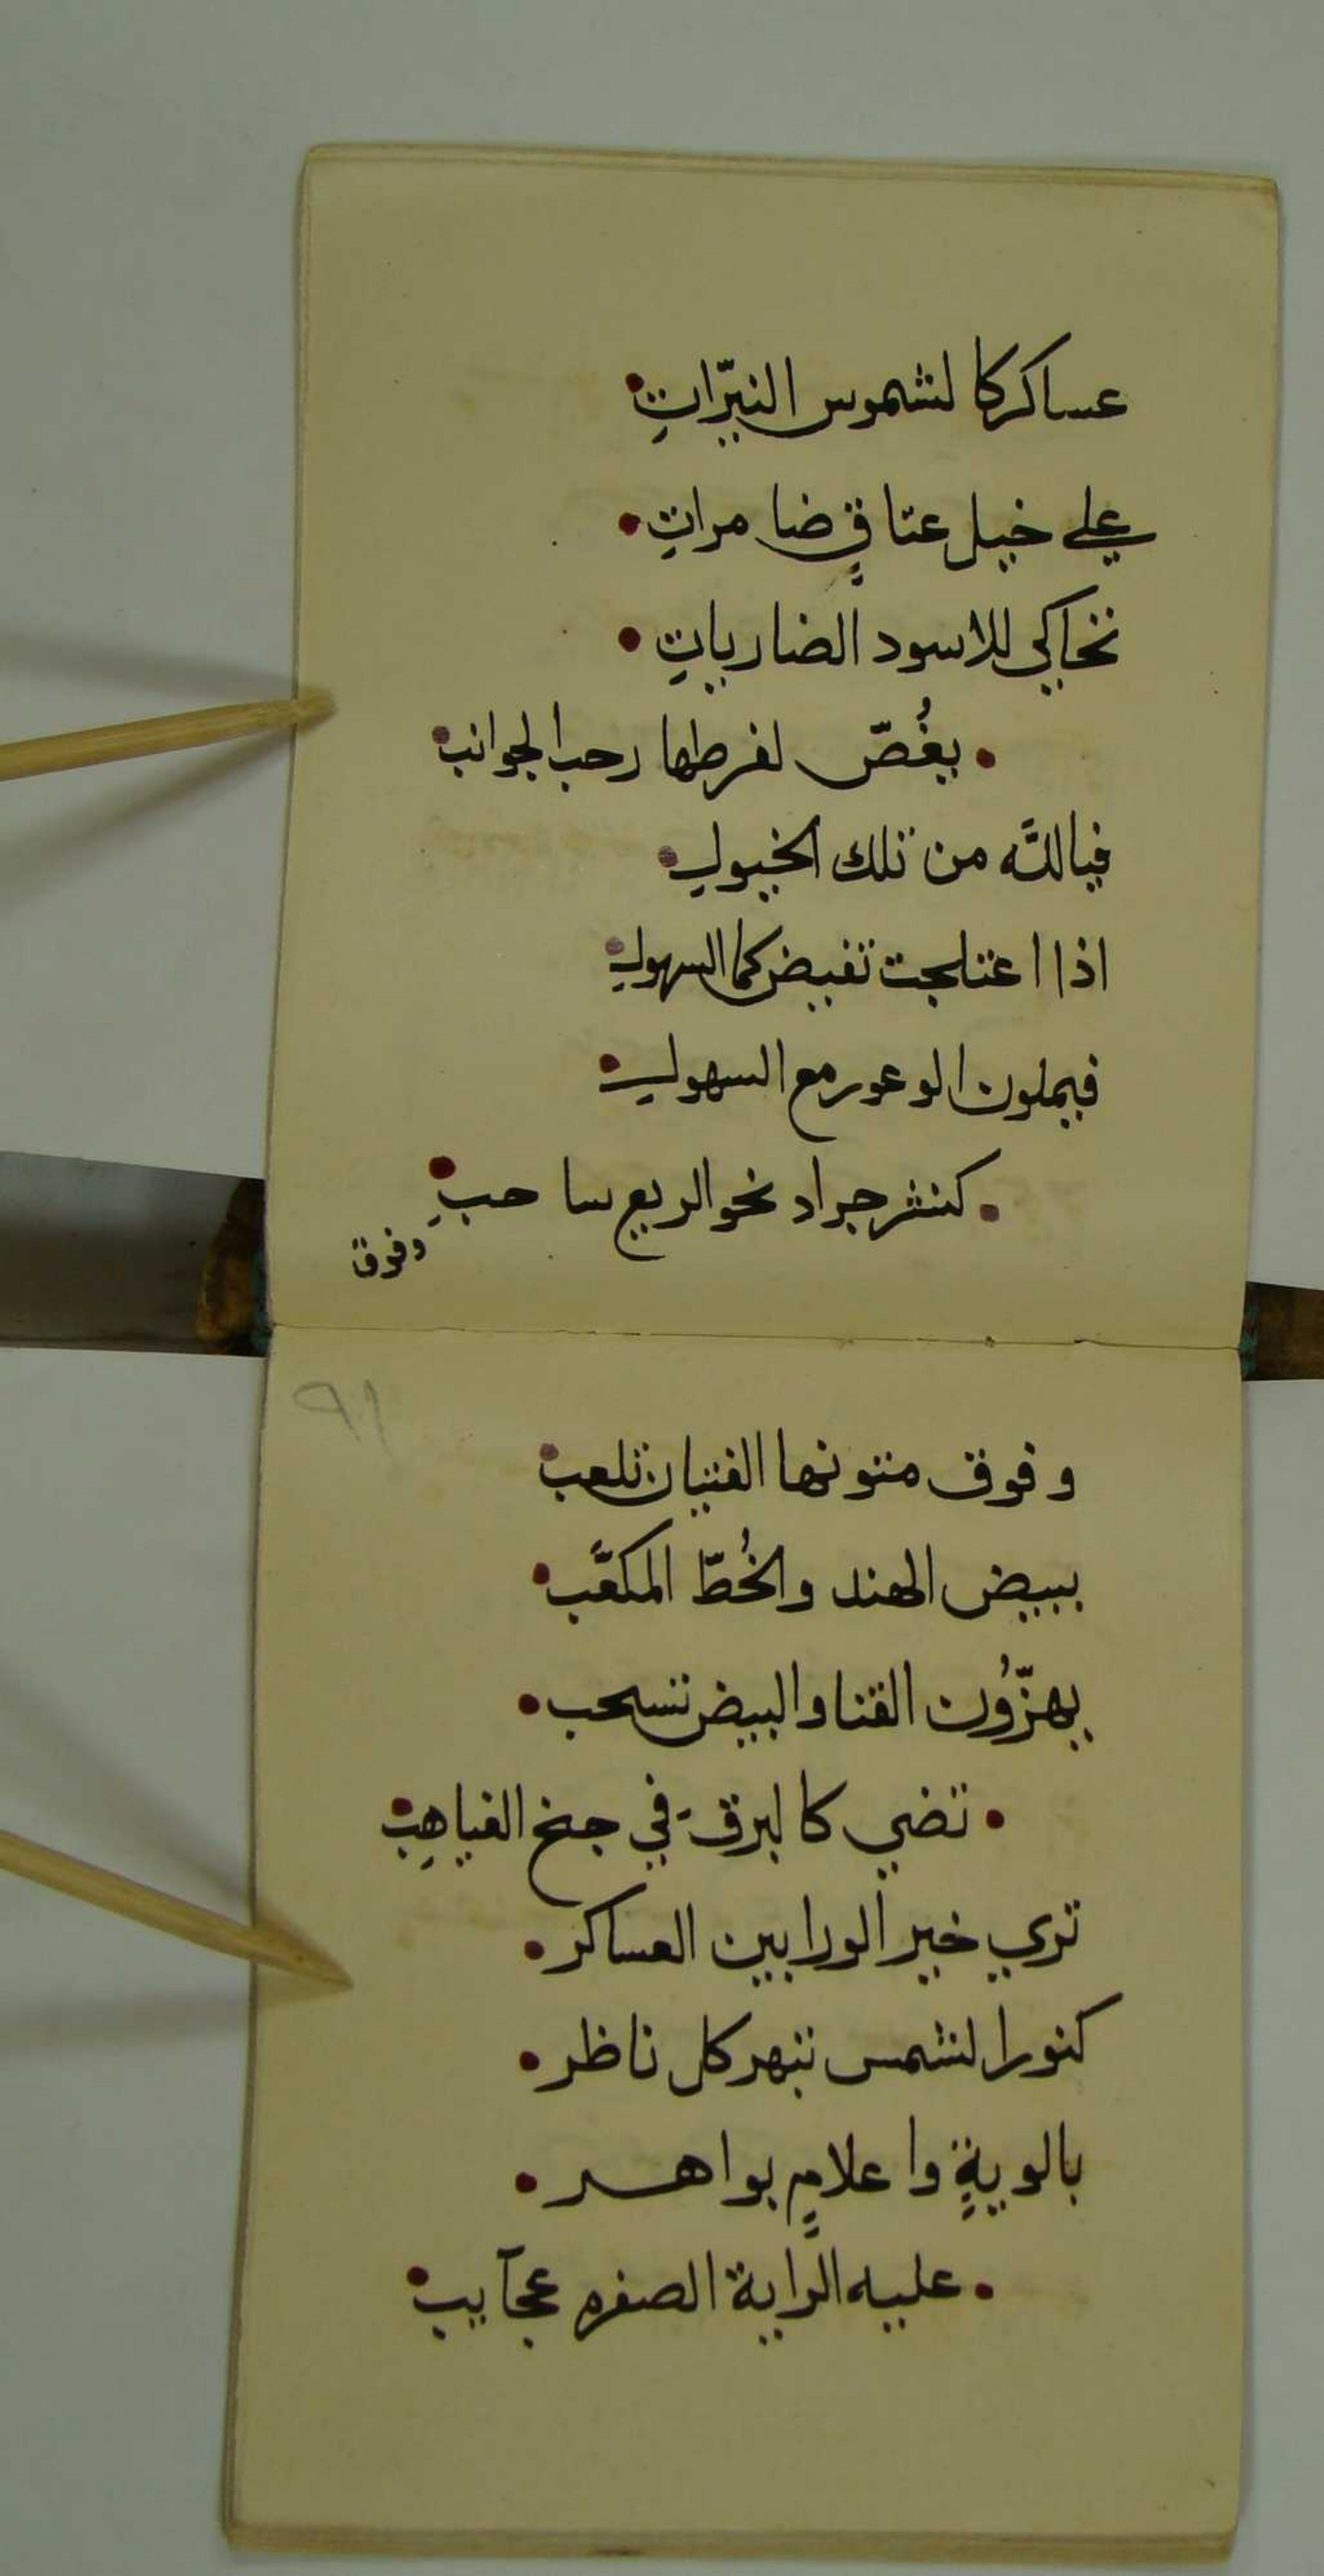 عساكر كالشموس النيّراتِ •
علي خيل عتاقٍ ضامراتِ •
تحاكي للاسود الضارياتِ •
• يغُصّ لفرطها رحب الجوانب •
فيا للّه من تلك الخيولِ •
اذا اعتلجت تفيض كما السهولِ •
فيملون الوعور مع السهولِ •
• كنثر جراد نحو الريع ساحبِ •
وفوق
٩١
وفوق متونها الفتيان تلعب •
ببيض الهند والخُطّ المكعَّب •
يهزّون القنا والبيض تسحب •
• تضي كالبرق في جنح الغياهِب •
تري خير الورا بين العساكر •
كنور الشمس تبهر كل ناظر •
بالويةٍ واعلامٍ بواهر •
• عليه الراية الصفره عجآيب •